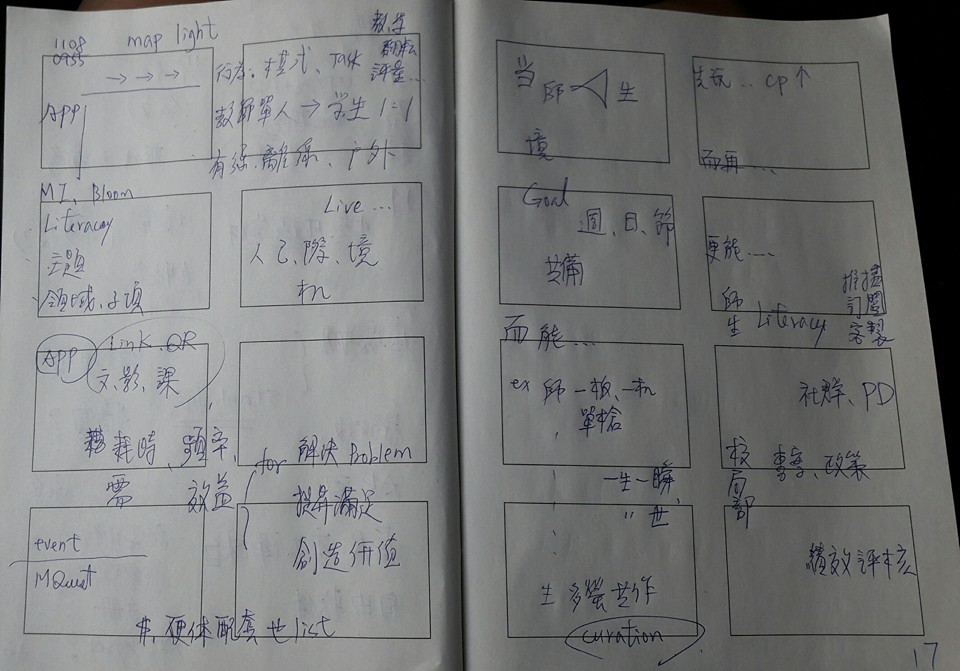 1108
0955
map light
→ → →
APP
教学
評量…
行為.模式、Talk
教師單人→学生 1=1
有線.離線、户外
MI、Bloom
Literacy
主題
領域、子項
Live…
人己、際、境
机
APP
Link.QR
文.影.課
耗時、頻率、
需 效益
for 解決 Problem
提昇滿足
創造価值
event
MQuest
井,硬体配套也list
当 師 生
境
先説… CP↑
而再…
Goal
週、日、節
共備
更能…
師
生 Literacy
推播
訂閱
客製
而能…
ex 師一板、一机
單槍
一生一瞬、
〃世
社群、PD
校
局
部
專案、政策
生 多螢共作
curation
績效評核
17